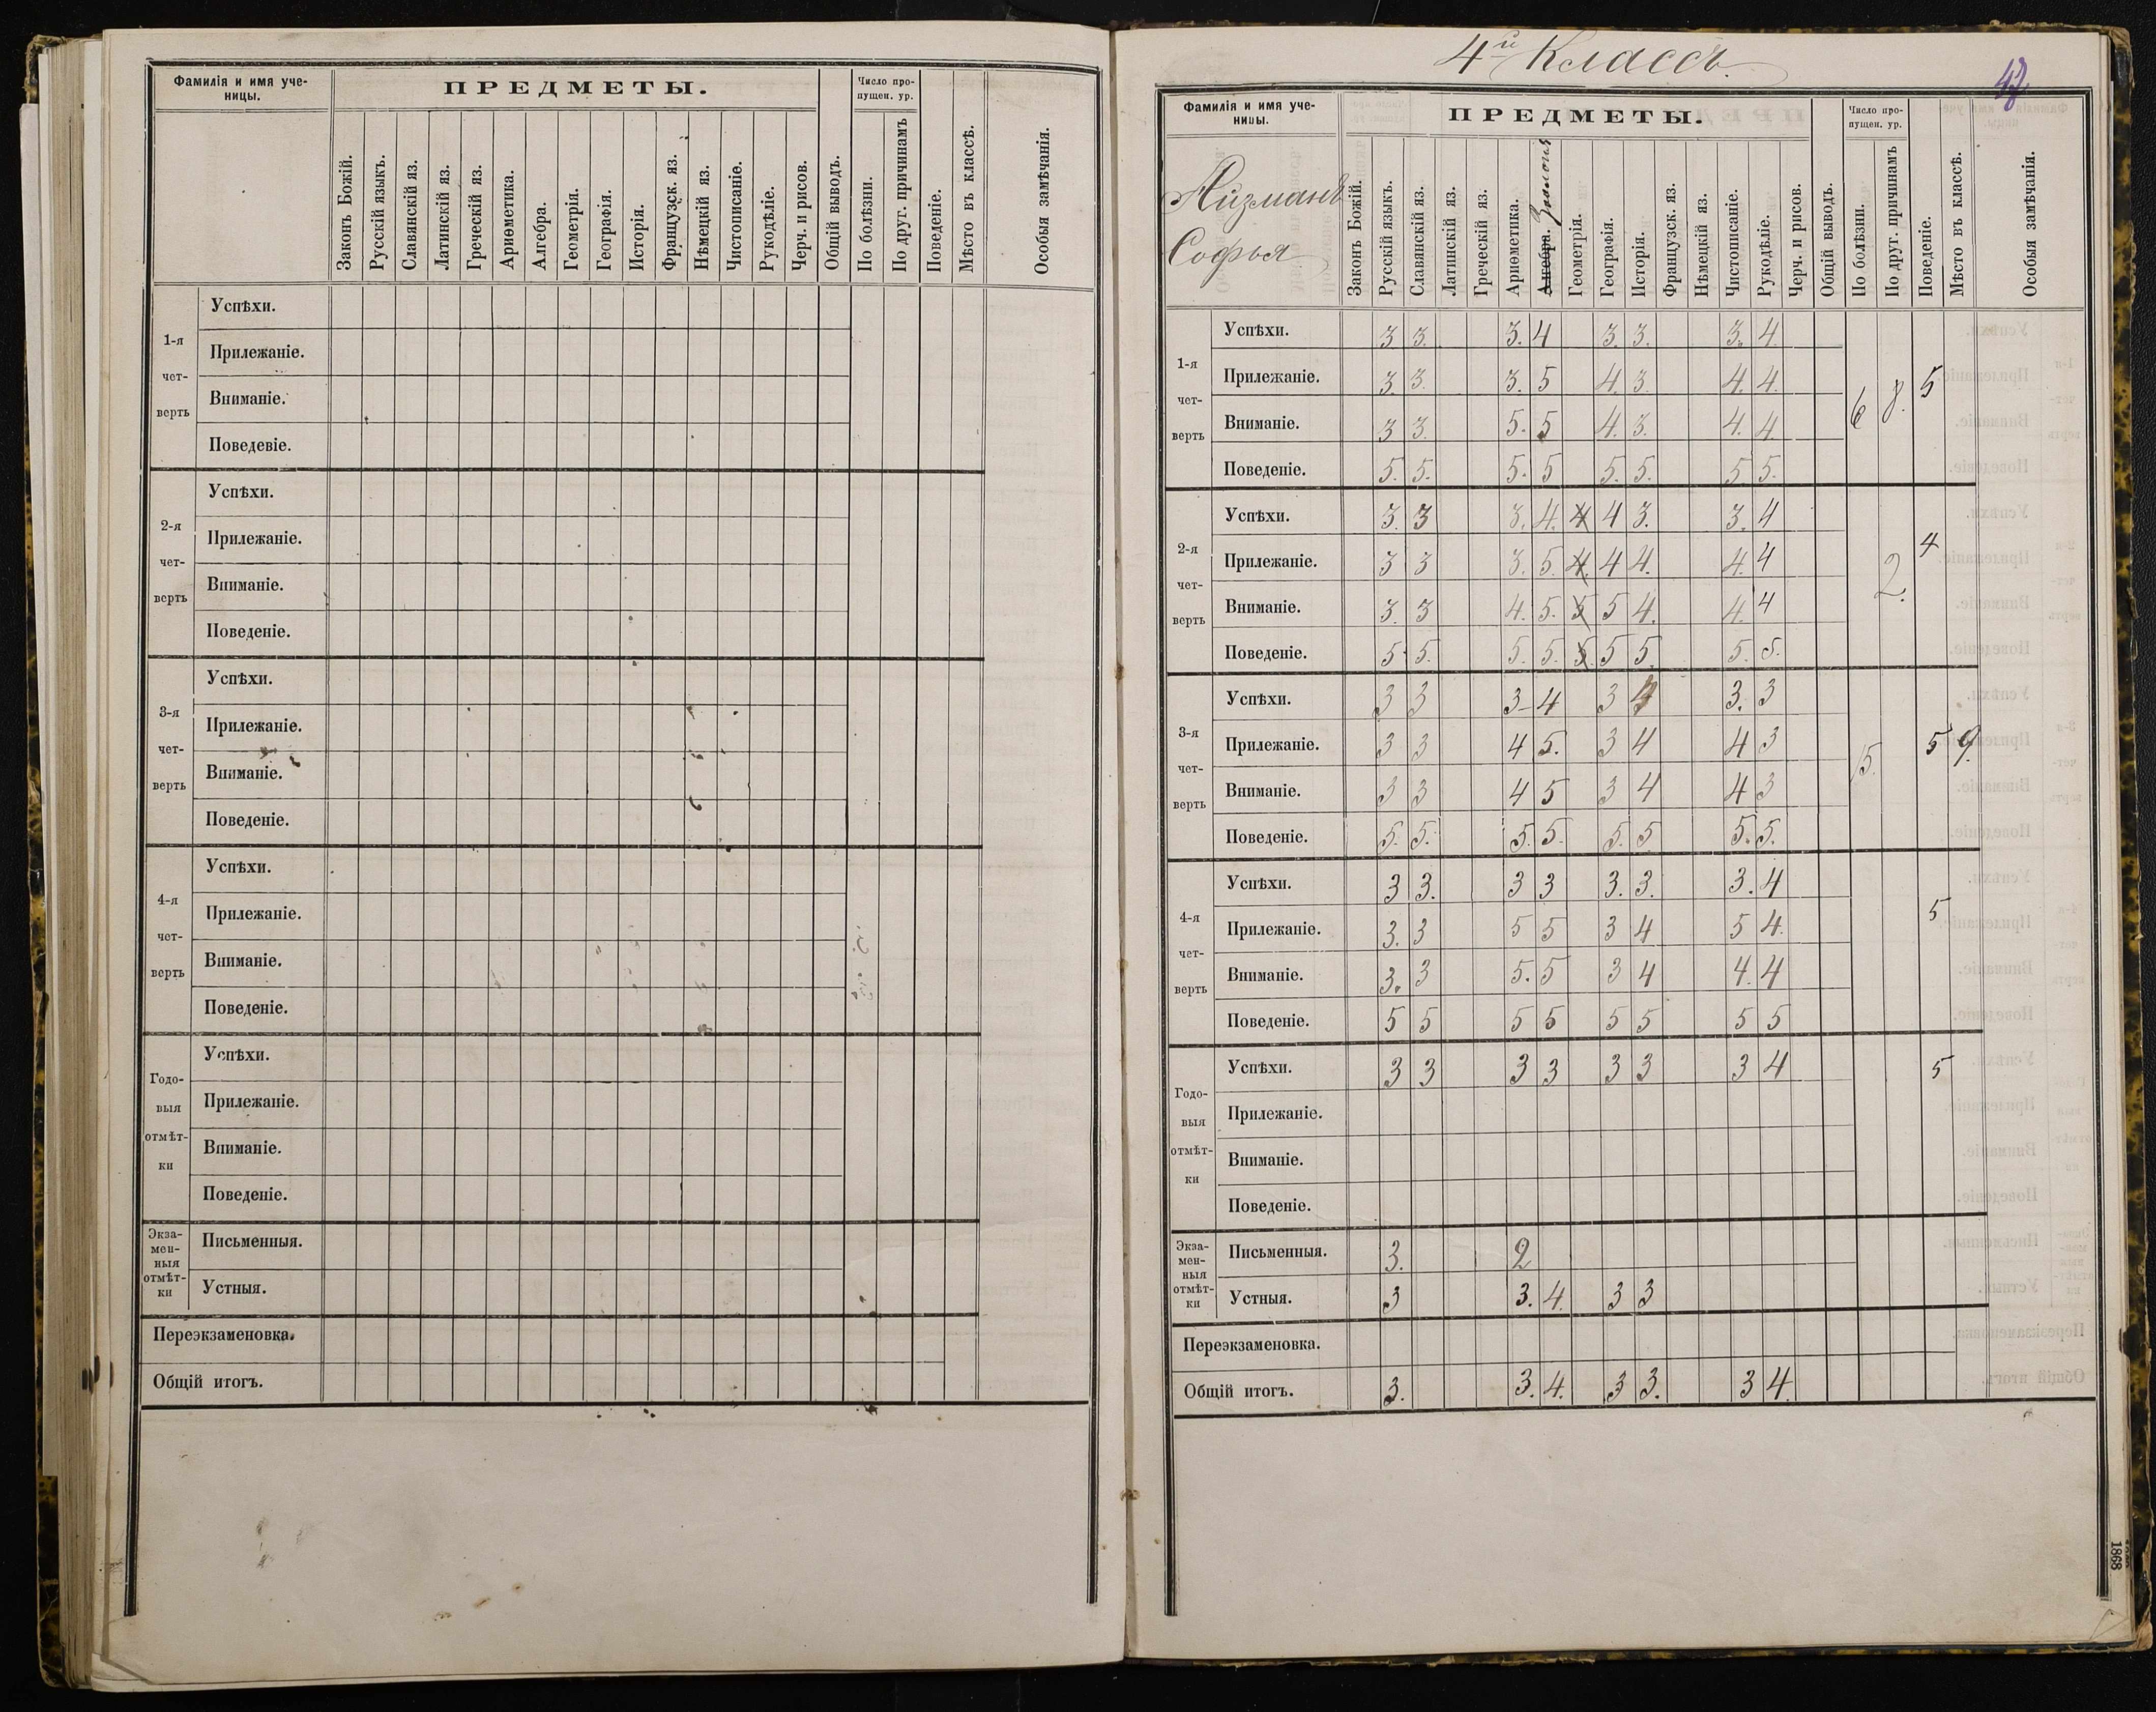 Фамилія и имя уче-
ницы.
ПРЕДМЕТЫ.
Число про-
пущен. ур.
Законъ Божій.
Русскій языкъ.
Славянскій яз.
Латинскій яз.
Греческій яз.
Ариѳметика.
Алгебра.
Геометрія.
Географія.
Исторія.
Французск. яз.
Нѣмецкій яз.
Чистописаніе.
Рукодѣліе.
Черч. и рисов.
Общій выводъ.
По болѣзни.
По друг. причинамъ
Поведеніе.
Мѣсто въ классѣ.
Особыя замѣчанія.
1-я
чет-
верть
Успѣхи.
Прилежаніе.
Вниманіе.
Поведевіе.
2-я
чет-
верть
Успѣхи.
Прилежаніе.
Вниманіе.
Поведеніе.
3-я
чет-
верть
Успѣхи.
Прилежаніе.
Вниманіе.
Поведеніе.
4-я
чет-
верть
Успѣхи.
Прилежаніе.
Вниманіе.
Поведеніе.
Годо-
выя
отмѣт-
ки
Успѣхи.
Прилежаніе.
Вниманіе.
Поведеніе.
Экза-
мен-
ныя
отмѣт-
ки
Письменныя.
Устныя.
Переэкзаменовка.
Общій итогъ.
4й Классъ.
Фамилія и имя уче-
ницы.
Айзманъ
Софья
ПРЕДМЕТЫ.
Число про-
пущен. ур.
Законъ Божій.
Русскій языкъ.
Славянскій яз.
Латинскій яз.
Греческій яз.
Ариѳметика.
Алгебра. Зоологія
Геометрія.
Географія.
Исторія.
Французск. яз.
Нѣмецкій яз.
Чистописаніе.
Рукодѣліе.
Черч. и рисов.
Общій выводъ.
По болѣзни.
По друг. причинамъ
Поведеніе.
Мѣсто въ классѣ.
Особыя замѣчанія.
1-я
чет-
верть
Успѣхи. 3. 3. 3. 4 3. 3. 3. 4.
Прилежаніе. 3. 3. 3. 5 4. 3. 4. 4.
Вниманіе. 3 3. 5. 5 4. 3. 4. 4.
Поведеніе. 5. 5. 5. 5 5. 5. 5. 5.
6 8. 5
2-я
чет-
верть
Успѣхи. 3. 3 3. 4. 4 4 3. 3. 4
Прилежаніе. 3 3 3. 5. 4. 4 4. 4. 4
Вниманіе. 3. 3 4. 5. 5 5 4. 4. 4
Поведеніе. 5. 5. 5. 5. 5. 5 5. 5. 5.
2. 4
3-я
чет-
верть
Успѣхи. 3 3 3- 4 3 3. 3
Прилежаніе. 3 3 4 5. 3 4 4 3
Вниманіе. 3 3 4 5 3 4 4 3
Поведеніе. 5. 5. 5. 5. 5. 5 5. 5.
5 9.
4-я
чет-
верть
Успѣхи. 3 3. 3 3 3. 3. 3. 4
Прилежаніе. 3. 3 5 5 3 4 5 4.
Вниманіе. 3. 3 5. 5 3 4 4. 4
Поведеніе. 5 5 5 5 5 5 5 5
5
Годо-
выя
отмѣт-
ки
Успѣхи. 3 3 3 3 3 3 3 4 5
Прилежаніе.
Вниманіе.
Поведеніе.
Экза-
мен-
ныя
отмѣт-
ки
Письменныя. 3. 2
Устныя. 3 3. 4. 3 3
Переэкзаменовка.
Общій итогъ. 3. 3. 4. 3 3. 3 4.
1868